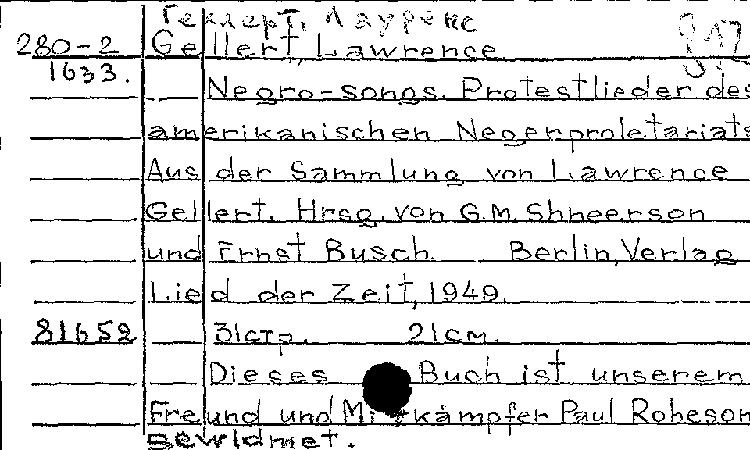 Геллерт, Лауренс
280-2 Gellert, Lawrence
1633.
Negro-songs. Protestlieder des
amerikanischen Negerproletariats
Aus der Sammlung von Lawrence
Gellert. Hrsg. von G.M. Shneerson
und Ernst Busch. Berlin, Verlag
Lied der Zeit, 1949.
81652 31стр. 21см.
Dieses Buch ist unserem
Freund und Mitkämpfer Paul Robeson
gewidmet.